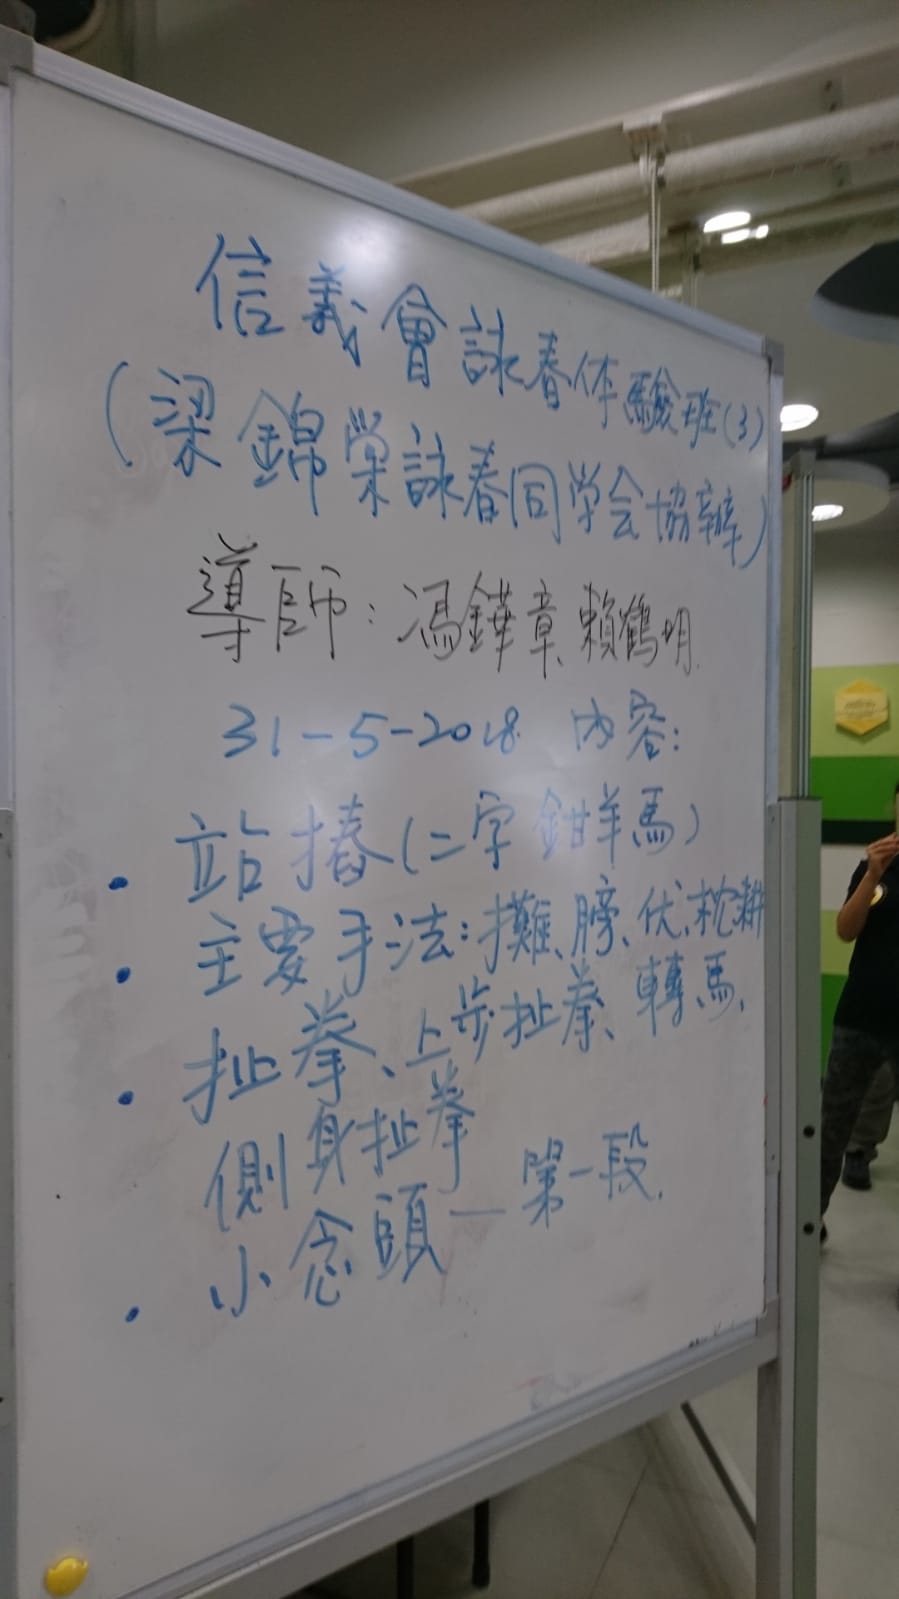 信義會詠春体驗班(3)
(梁錦棠詠春同学会協辦)
導師：馮鏵章、賴鶴明
31-5-2018 内容：
· 站摏(二字鉗羊馬)
· 主要手法：攤、膀、伏、枕耕
· 扯拳、上步扯拳、轉馬、
側身扯拳
· 小念頭一第一段.